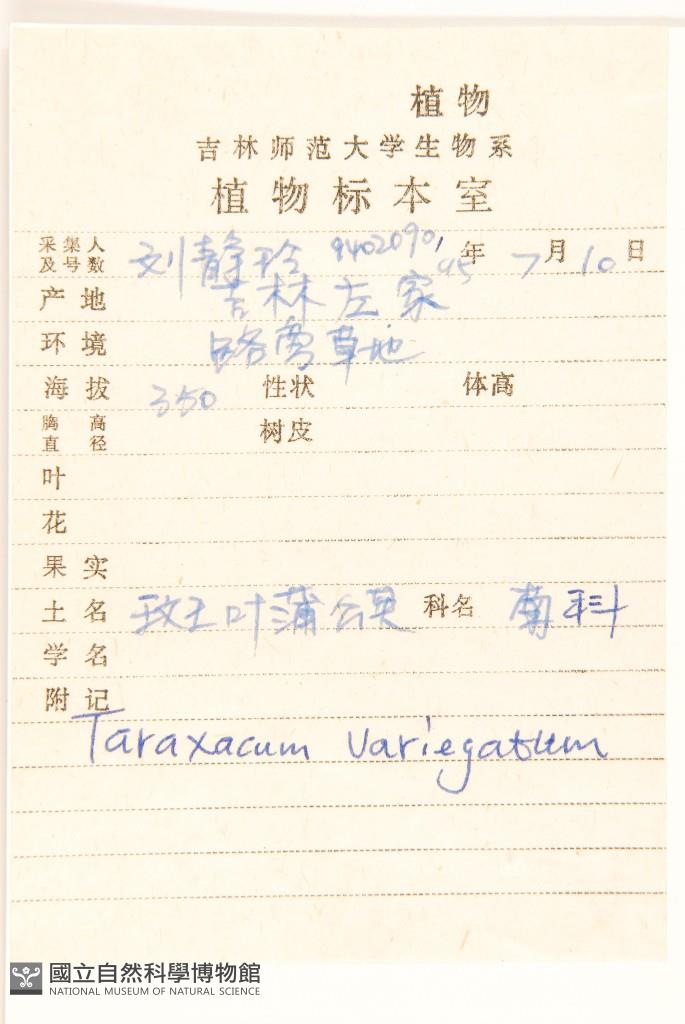 植物
吉林师范大学生物系
植物标本室
采集人及号数 刘静玲 9402090, 95年 7月10日
产地 吉林左家
环境 路旁草地
海拔 350 性状 体高
胸高直径 树皮
叶
花
果实
土名 叶蒲公英 科名 菊科
学名
附记
Taraxacum variegatum
國立自然科學博物館
NATIONAL MUSEUM OF NATURAL SCIENCE